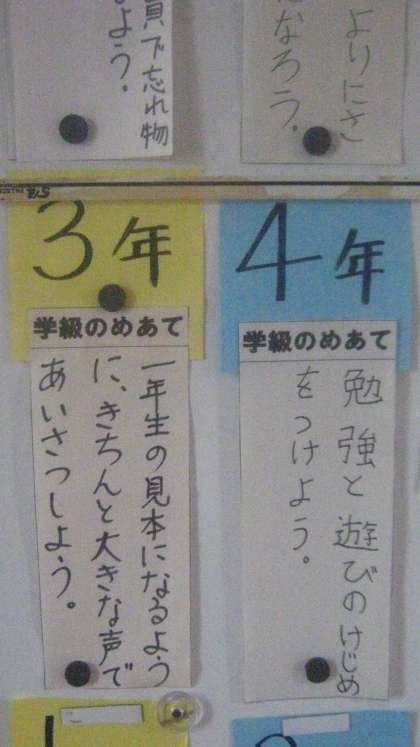 員で忘れ物
よう。
よりにさ
になろう。
3年
学級のめあて
一年生の見本になるよう
に、きちんと大きな声で
あいさつしよう。
4年
学級のめあて
勉強と遊びのけじめ
をつけよう。